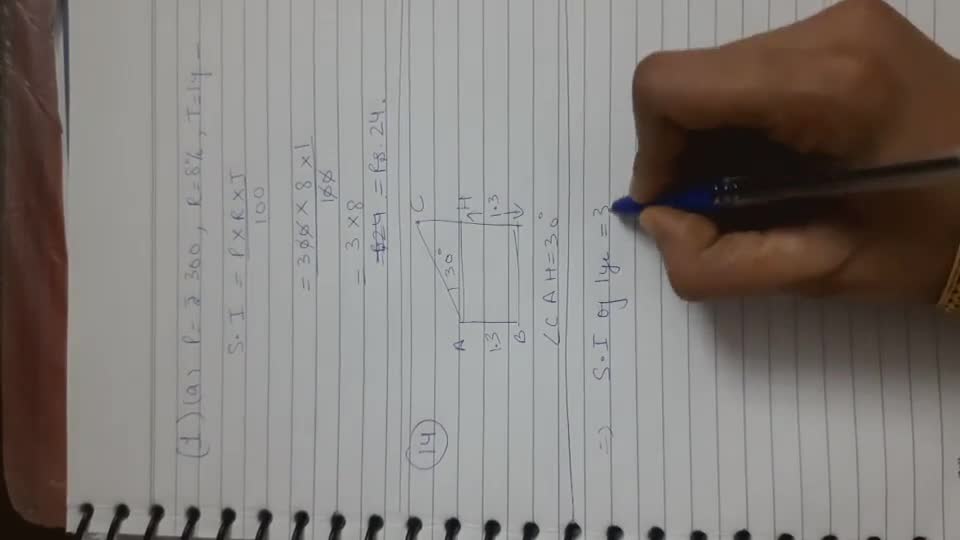 (1) (a) P = ₹ 300, R = 8%, T = 1y
S.I = P x R x T
100
= 300 x 8 x 1
100
= 3 x 8
= 24 = Rs. 24.
(14)
C
A 30° H
1.3 1.3
B
∠CAH = 30°
=> S.I of 1ye = 3